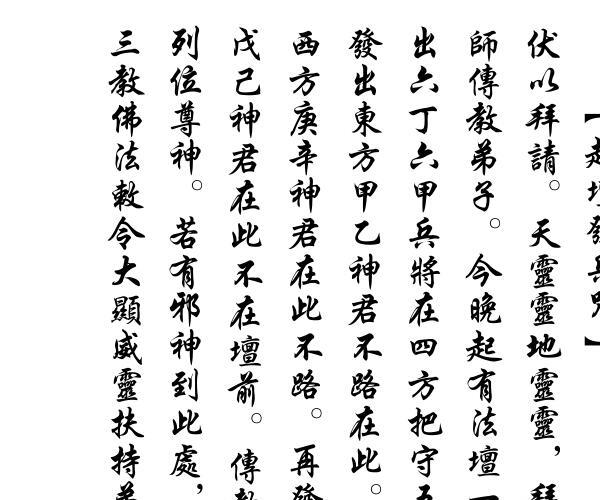 伏以拜請。天靈靈地靈靈，拜
師傳教弟子。今晚起有法壇一
出六丁六甲兵將在四方把守五
發出東方甲乙神君不路在此。
西方庚辛神君在此不路。再發
戊己神君在此不在壇前。傳教
列位尊神。若有邪神到此處，
三教佛法敕令大顯威靈扶持弟